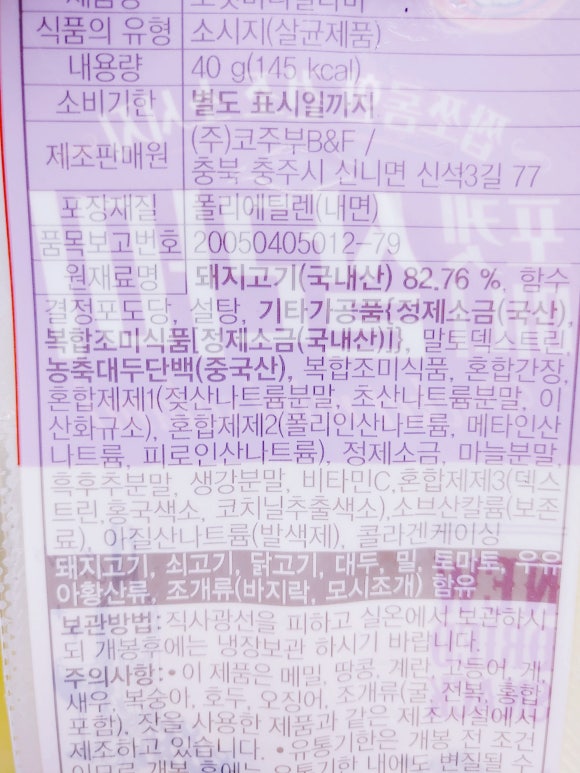 식품의 유형 소시지(살균제품)
내용량 40 g(145 kcal)
소비기한 별도 표시일까지
제조판매원 (주)코주부B&F /
충북 충주시 신니면 신석3길 77
포장재질 폴리에틸렌(내면)
품목보고번호 20050405012-79
원재료명 돼지고기(국내산) 82.76 %, 함수
결정포도당, 설탕, 기타가공품{정제소금(국산),
복합조미식품[정제소금(국내산)]}, 말토덱스트린,
농축대두단백(중국산), 복합조미식품, 혼합간장,
혼합제제1(젖산나트륨분말, 초산나트륨분말, 이
산화규소), 혼합제제2(폴리인산나트륨, 메타인산
나트륨, 피로인산나트륨), 정제소금, 마늘분말,
흑후추분말, 생강분말, 비타민C,혼합제제3(덱스
트린,홍국색소, 코치닐추출색소),소브산칼륨(보존
료), 아질산나트륨(발색제), 콜라겐케이싱
돼지고기, 쇠고기, 닭고기, 대두, 밀, 토마토, 우유
아황산류, 조개류(바지락, 모시조개) 함유
보관방법:직사광선을 피하고 실온에서 보관하시
되 개봉후에는 냉장보관 하시기 바랍니다.
주의사항:•이 제품은 메밀, 땅콩, 계란, 고등어, 게,
새우, 복숭아, 호두, 오징어, 조개류(굴, 전복, 홍합
포함), 잣을 사용한 제품과 같은 제조시설에서
제조하고 있습니다. •유통기한은 개봉 전 조건
이므로 개봉 후에는 유통기한 내에도 변질될 수